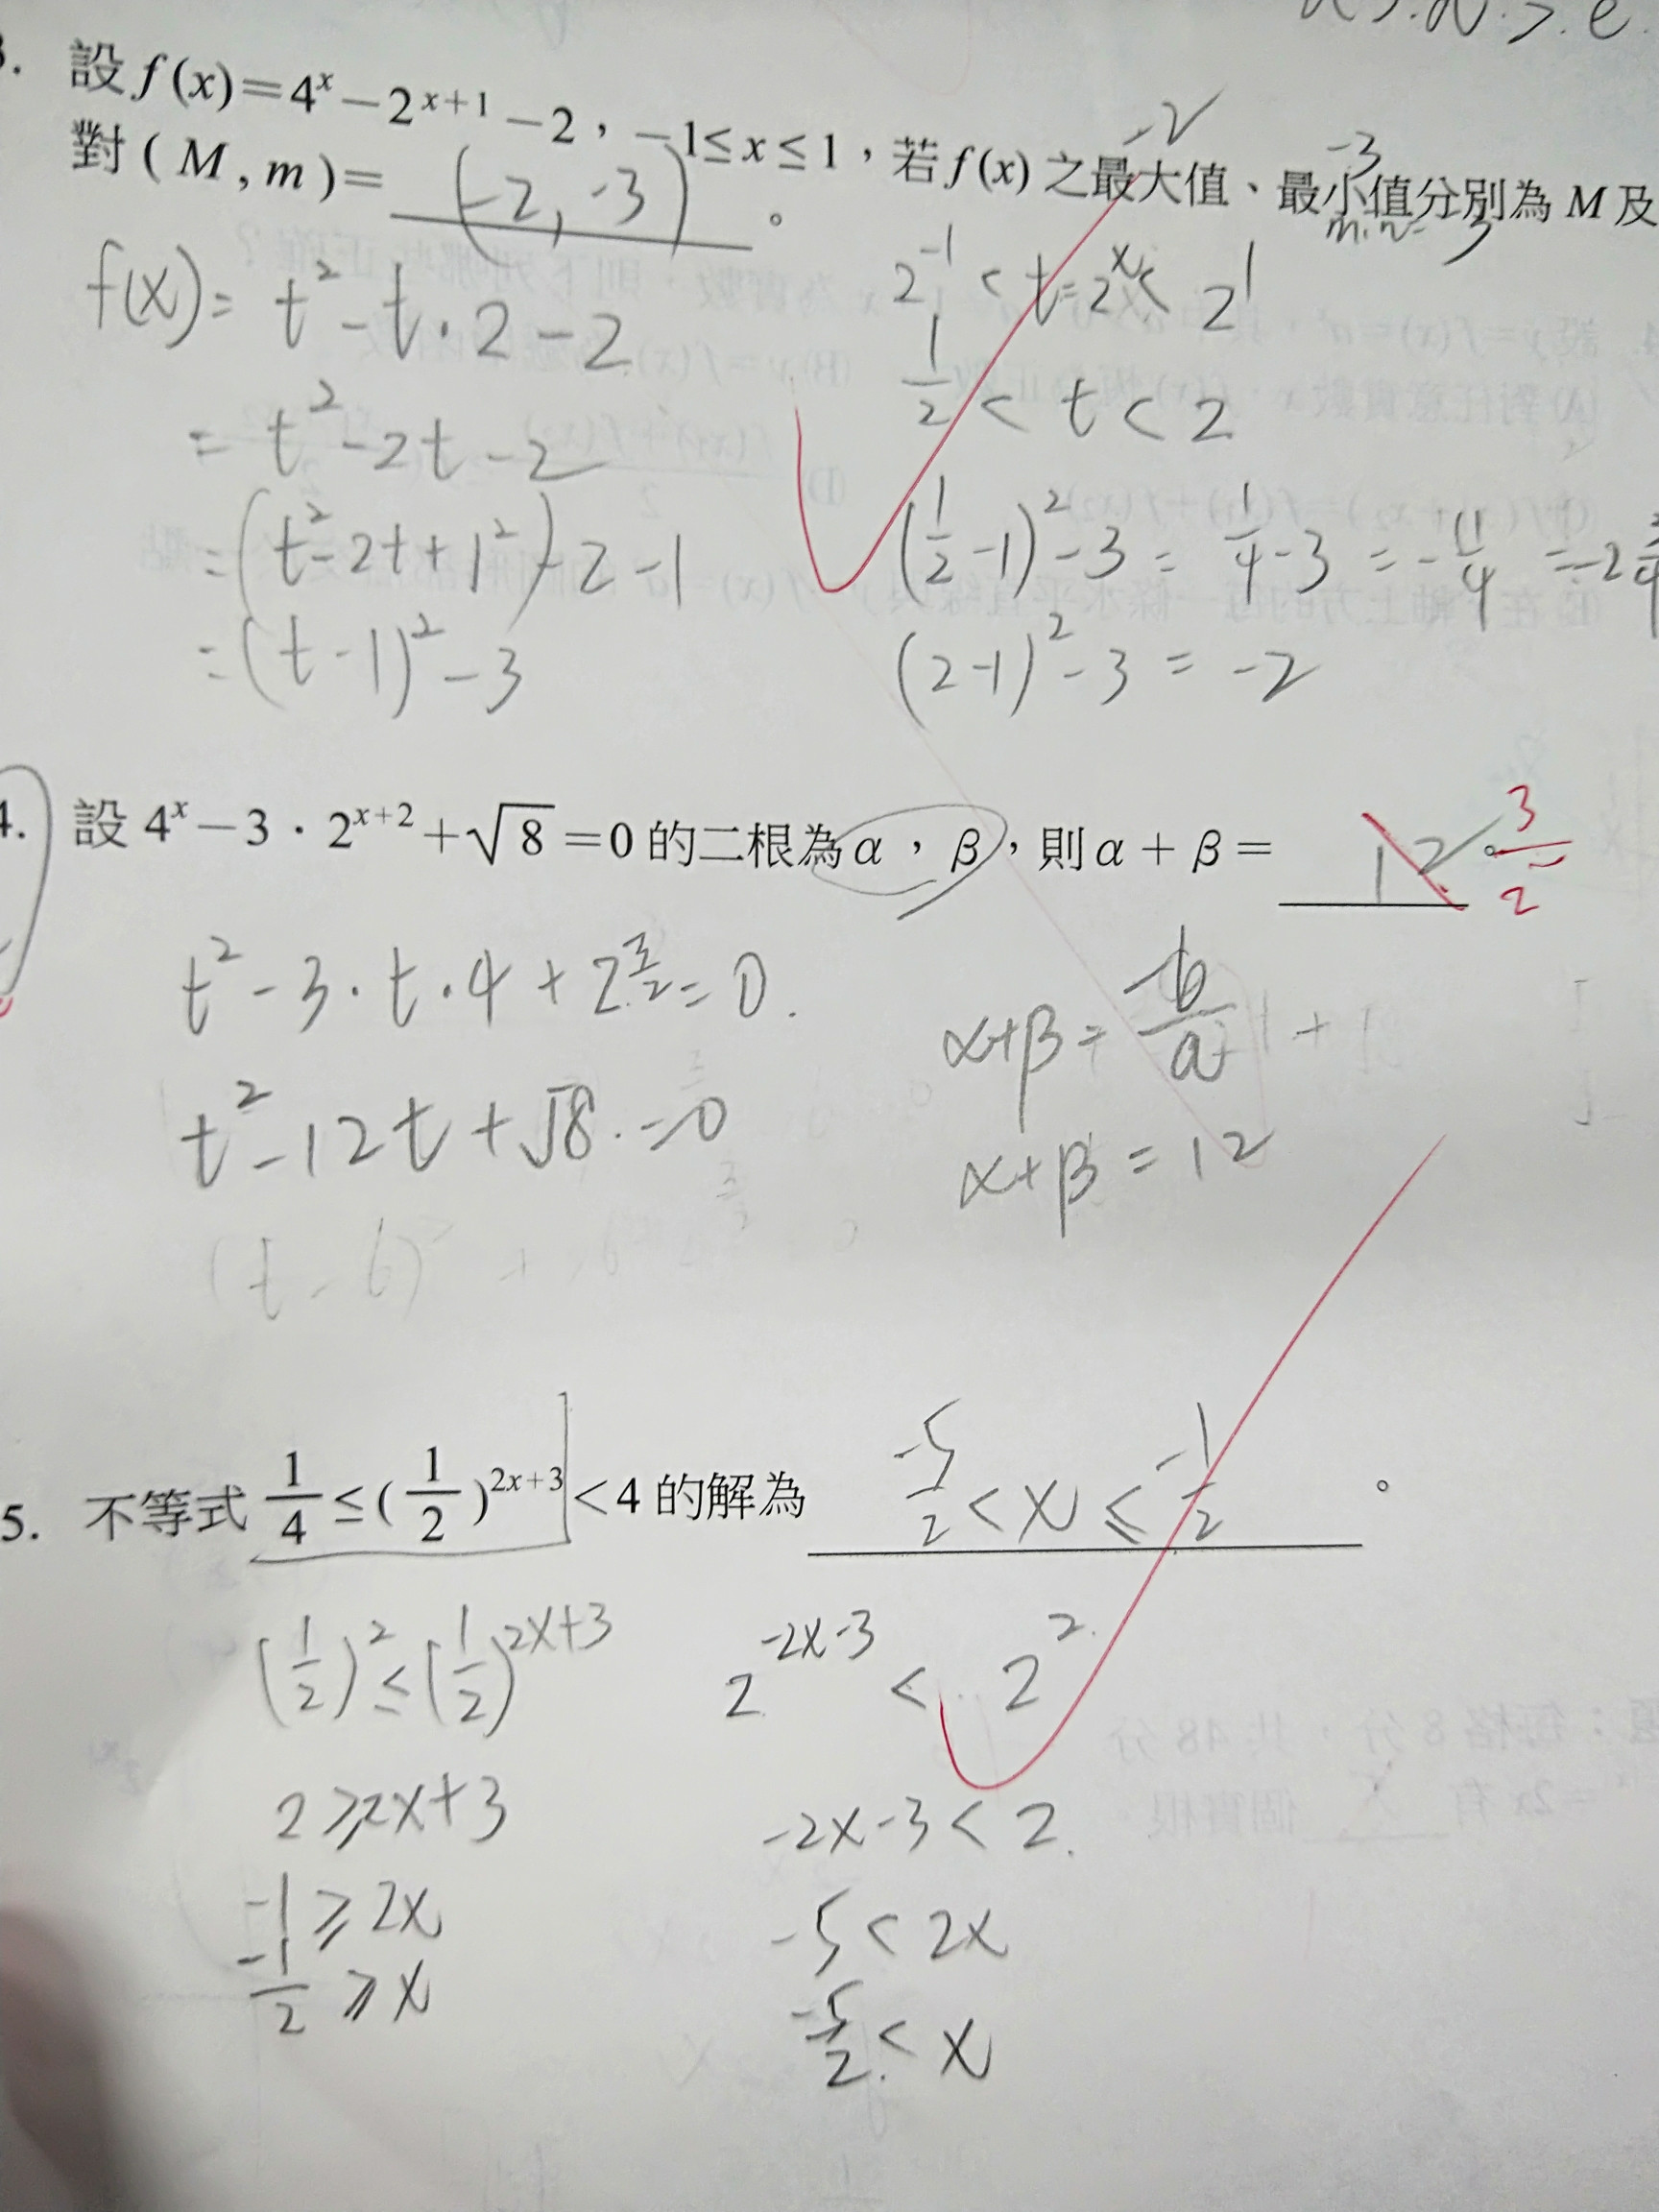 . 設 f(x)=4^x－2^{x+1}－2，－1≤x≤1，若 f(x) 之最大值、最小值分別為 M 及
-2
-3
min=-3
對 ( M , m )= (-2, -3) 。
f(x)= t²-t·2-2
= t²-2t-2
=(t²-2t+1²)-2-1
=(t-1)²-3
2^{-1} < t=2^x < 2^1
1/2 < t < 2
(1/2-1)²-3 = 1/4-3 = -11/4 = -2 3/4
(2-1)²-3 = -2
4. 設 4^x－3．2^{x+2}+√8=0 的二根為 α，β，則 α + β = 12 。 3/2
t²-3·t·4+2^{3/2}=0.
t²-12t+√8.=0
(t-6)²
α+β= -b/a
α+β=12
5. 不等式 1/4≤(1/2)^{2x+3}<4 的解為 -5/2<x≤-1/2 。
(1/2)²≤(1/2)^{2x+3}
2≥2x+3
-1≥2x
-1/2≥x
2^{-2x-3} < 2².
-2x-3<2.
-5<2x
-5/2<x